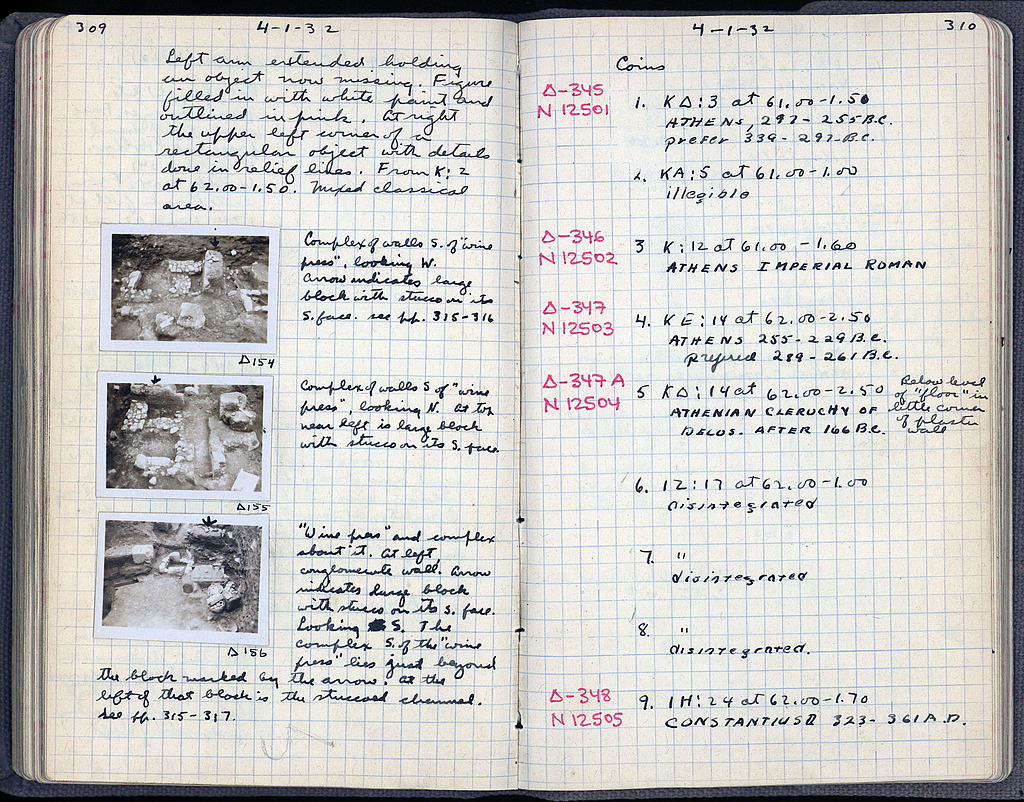 309
4-1-32
Left arm extended holding
an object now missing. Figure
filled in with white paint and
outlined in pink. At right
the upper left corner of a
rectangular object with details
done in relief lines. From K:2
at 62.00-1.50. Mixed classical
area.
Complex of walls S. of "wine
press", looking W.
Arrow indicates large
block with stucco on its
S. face. see pp. 315-316
Δ154
Complex of walls S of "wine
press", looking N. At top
near left is large block
with stucco on its S. face.
Δ155
"Wine press" and complex
about it. At left,
conglomerate wall. Arrow
indicates large block
with stucco on its S. face.
Looking S. The
complex S. of the "wine
press" lies just beyond
the block marked by the arrow. At the
left of that block is the stuccoed channel.
See pp. 315-317.
Δ156
4-1-32
310
Coins
Δ-345
N 12501
1. KΔ:3 at 61.00-1.50
ATHENS, 297-255 B.C.
prefer 339-297 B.C.
2. KA:5 at 61.00-1.00
illegible
Δ-346
N 12502
3 K:12 at 61.00-1.60
ATHENS IMPERIAL ROMAN
Δ-347
N 12503
4. KE:14 at 62.00-2.50
ATHENS 255-229 B.C.
prefered 289-261 B.C.
Δ-347A
N 12504
5 KΔ:14 at 62.00-2.50
ATHENIAN CLERUCHY OF
DELOS. AFTER 166 B.C.
Below level
of "floor" in
little corner
of plaster
wall
6. IZ:17 at 62.00-1.00
disintegrated
7. "
disintegrated
8. "
disintegrated.
Δ-348
N 12505
9. IH:24 at 62.00-1.70
CONSTANTIUS II 323-361 A.D.